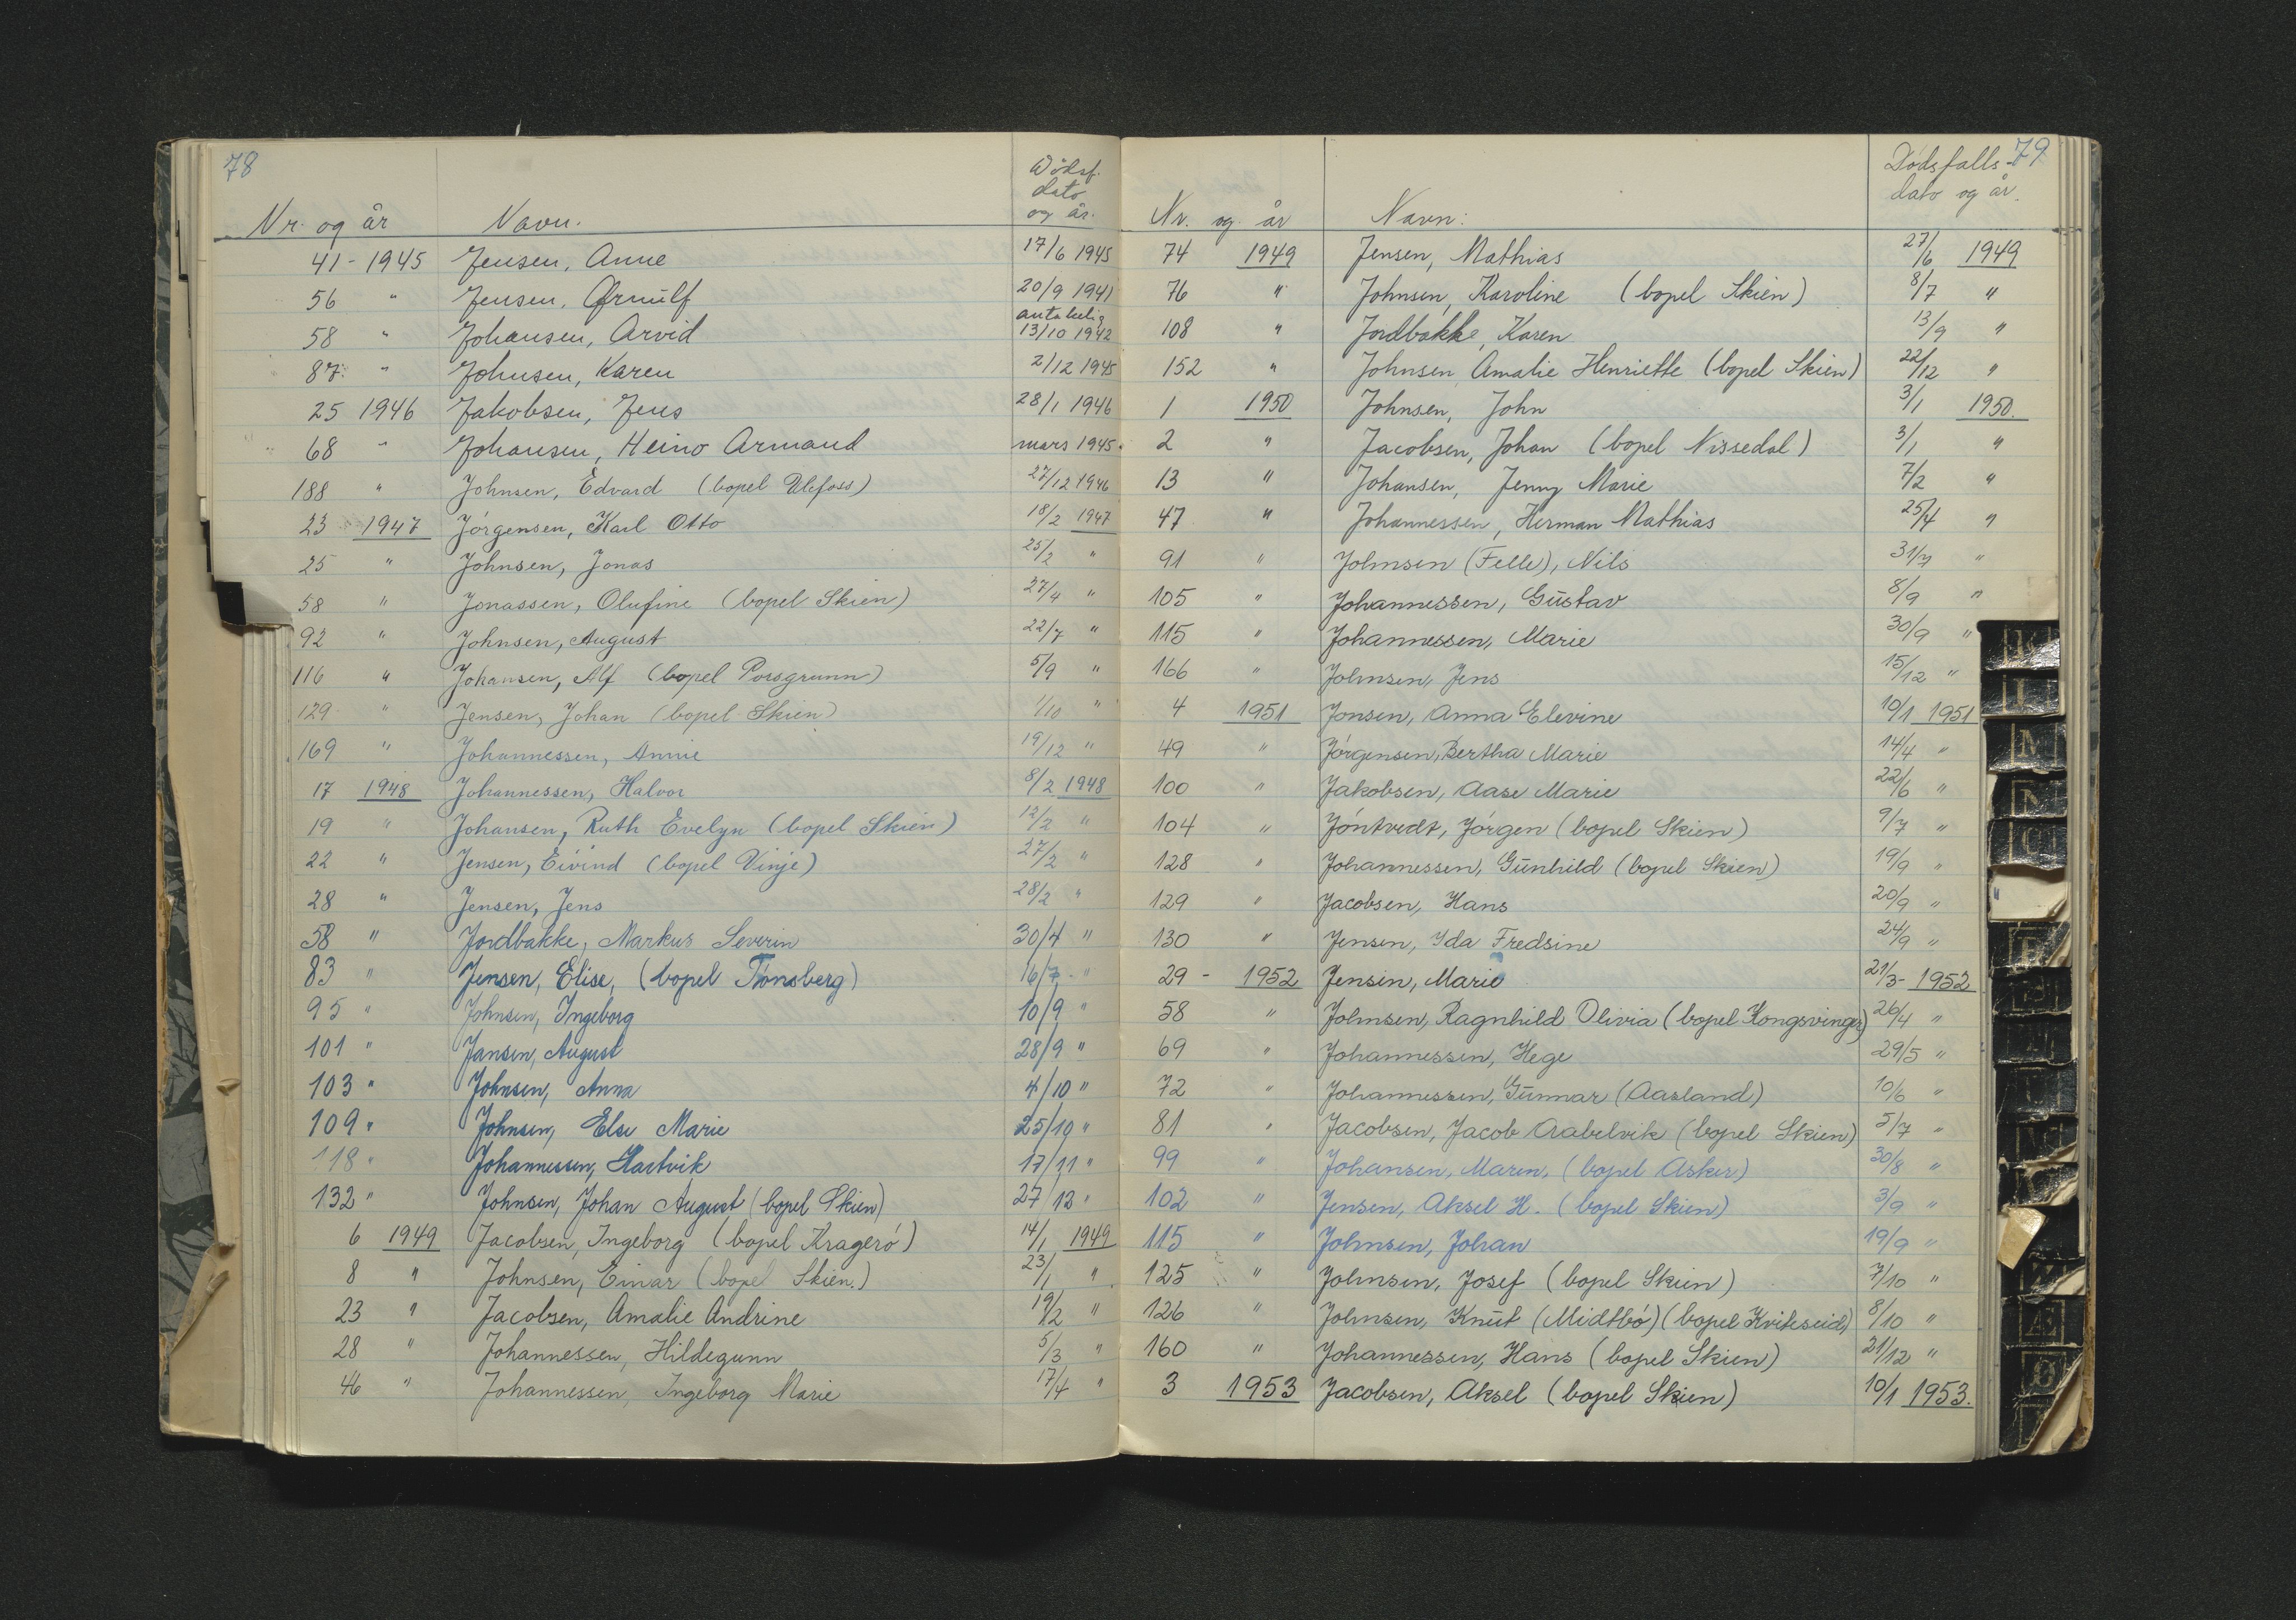 78
Nr. og år Navn. Dödsf. dato og år.
41 - 1945 Jensen, Anne 17/6 1945
56 " Jensen, Ørnulf 20/9 1941
58 " Johansen, Arvid antakelig 13/10 1942
87. " Johnsen, Karen 2/12 1945
25 1946 Jakobsen, Jens 28/1 1946
68 " Johansen, Heino Armand mars 1945.
188 " Johnsen, Edvard (bopel Ulefoss) 27/12 1946
23 1947 Jörgensen, Karl Otto 18/2 1947
25 " Johnsen, Jonas 25/2 "
58 " Jonassen, Olufine (bopel Skien) 27/4 "
92 " Johnsen, August 22/7 "
116 " Johansen, Alf (bopel Porsgrunn) 5/9 "
129 " Jensen, Johan (bopel Skien) 1/10 "
169 " Johannessen, Annie 19/12 "
17 1948 Johannessen, Halvor 8/2 1948
19 " Johansen, Ruth Evelyn (bopel Skien) 12/2 "
22 " Jensen, Eivind (bopel Vinje) 27/2 "
28 " Jensen, Jens 28/2 "
58 " Jordbakke, Markus Severin 30/4 "
83 " Jensen, Elise, (bopel Tönsberg) 16/7 - "
95 " Johnsen, Ingeborg 10/9 "
101 " Jansen, August 28/9 "
103 " Johnsen, Anna 4/10 "
109 " Johnsen, Else Marie 25/10 "
118 " Johannessen, Hartvik 17/11 "
132 " Johnsen, Johan August (bopel Skien) 27/12 "
6 1949 Jacobsen, Ingeborg (bopel Kragerö) 14/1 1949
8 " Johnsen, Einar (bopel Skien.) 23/1 "
23 " Jacobsen, Amalie Andrine 19/2 "
28 " Johannessen, Hildegunn 5/3 "
46 " Johannessen, Ingeborg Marie 17/4 "
79
Nr. og år Navn: Dödsfalls- dato og år.
74 1949 Jensen, Mathias 27/6 1949
76 " Johnsen, Karoline (bopel Skien) 8/7 "
108 " Jordbakke, Karen 13/9 "
152 " Johnsen Amalie Henriette (bopel Skien) 22/12 "
1 1950 Johnsen, John 3/1 1950.
2 " Jacobsen, Johan (bopel Nissedal) 3/1 "
13 " Johansen, Jenny Marie 7/2 "
47 " Johannessen, Herman Mathias 25/4 "
91 " Johnsen (Felle), Nils 31/7 "
105 " Johannessen, Gustav 8/9 "
115 " Johannessen, Marie 30/9 "
166 " Johnsen, Jens 15/12 "
4 1951 Jonsen, Anna Elevine 10/1 1951
49 " Jörgensen, Bertha Marie 14/4 "
100 " Jakobsen, Aase Marie 22/6 "
104 " Jöntvedt, Jörgen (bopel Skien) 9/7 "
128 " Johannessen, Gunhild (bopel Skien) 19/9 "
129 " Jacobsen, Hans 20/9 "
130 " Jensen, Ida Fredsine 24/9 "
29 - 1952 Jensen, Marie 21/3 - 1952
58 " Johnsen, Ragnhild Olivia (bopel Kongsvinger) 26/4 "
69 " Johannessen, Hege 29/5 "
72 " Johannessen, Gunnar (Aasland) 10/6 "
81 " Jacobsen, Jacob Aabelvik (bopel Skien) 5/7 "
99 " Johansen, Maren, (bopel Asker) 30/8 "
102 " Jensen, Aksel H. (bopel Skien) 3/9 "
115 " Johnsen, Johan 19/9 "
125 " Johnsen, Josef (bopel Skien) 7/10 "
126 " Johnsen, Knut (Midtbö) (bopel Kviteseid) 8/10 "
160 " Johannessen, Hans (bopel Skien) 21/12 "
3 1953 Jacobsen, Aksel (bopel Skien) 10/1 1953.
M
N
O
Æ
Ø